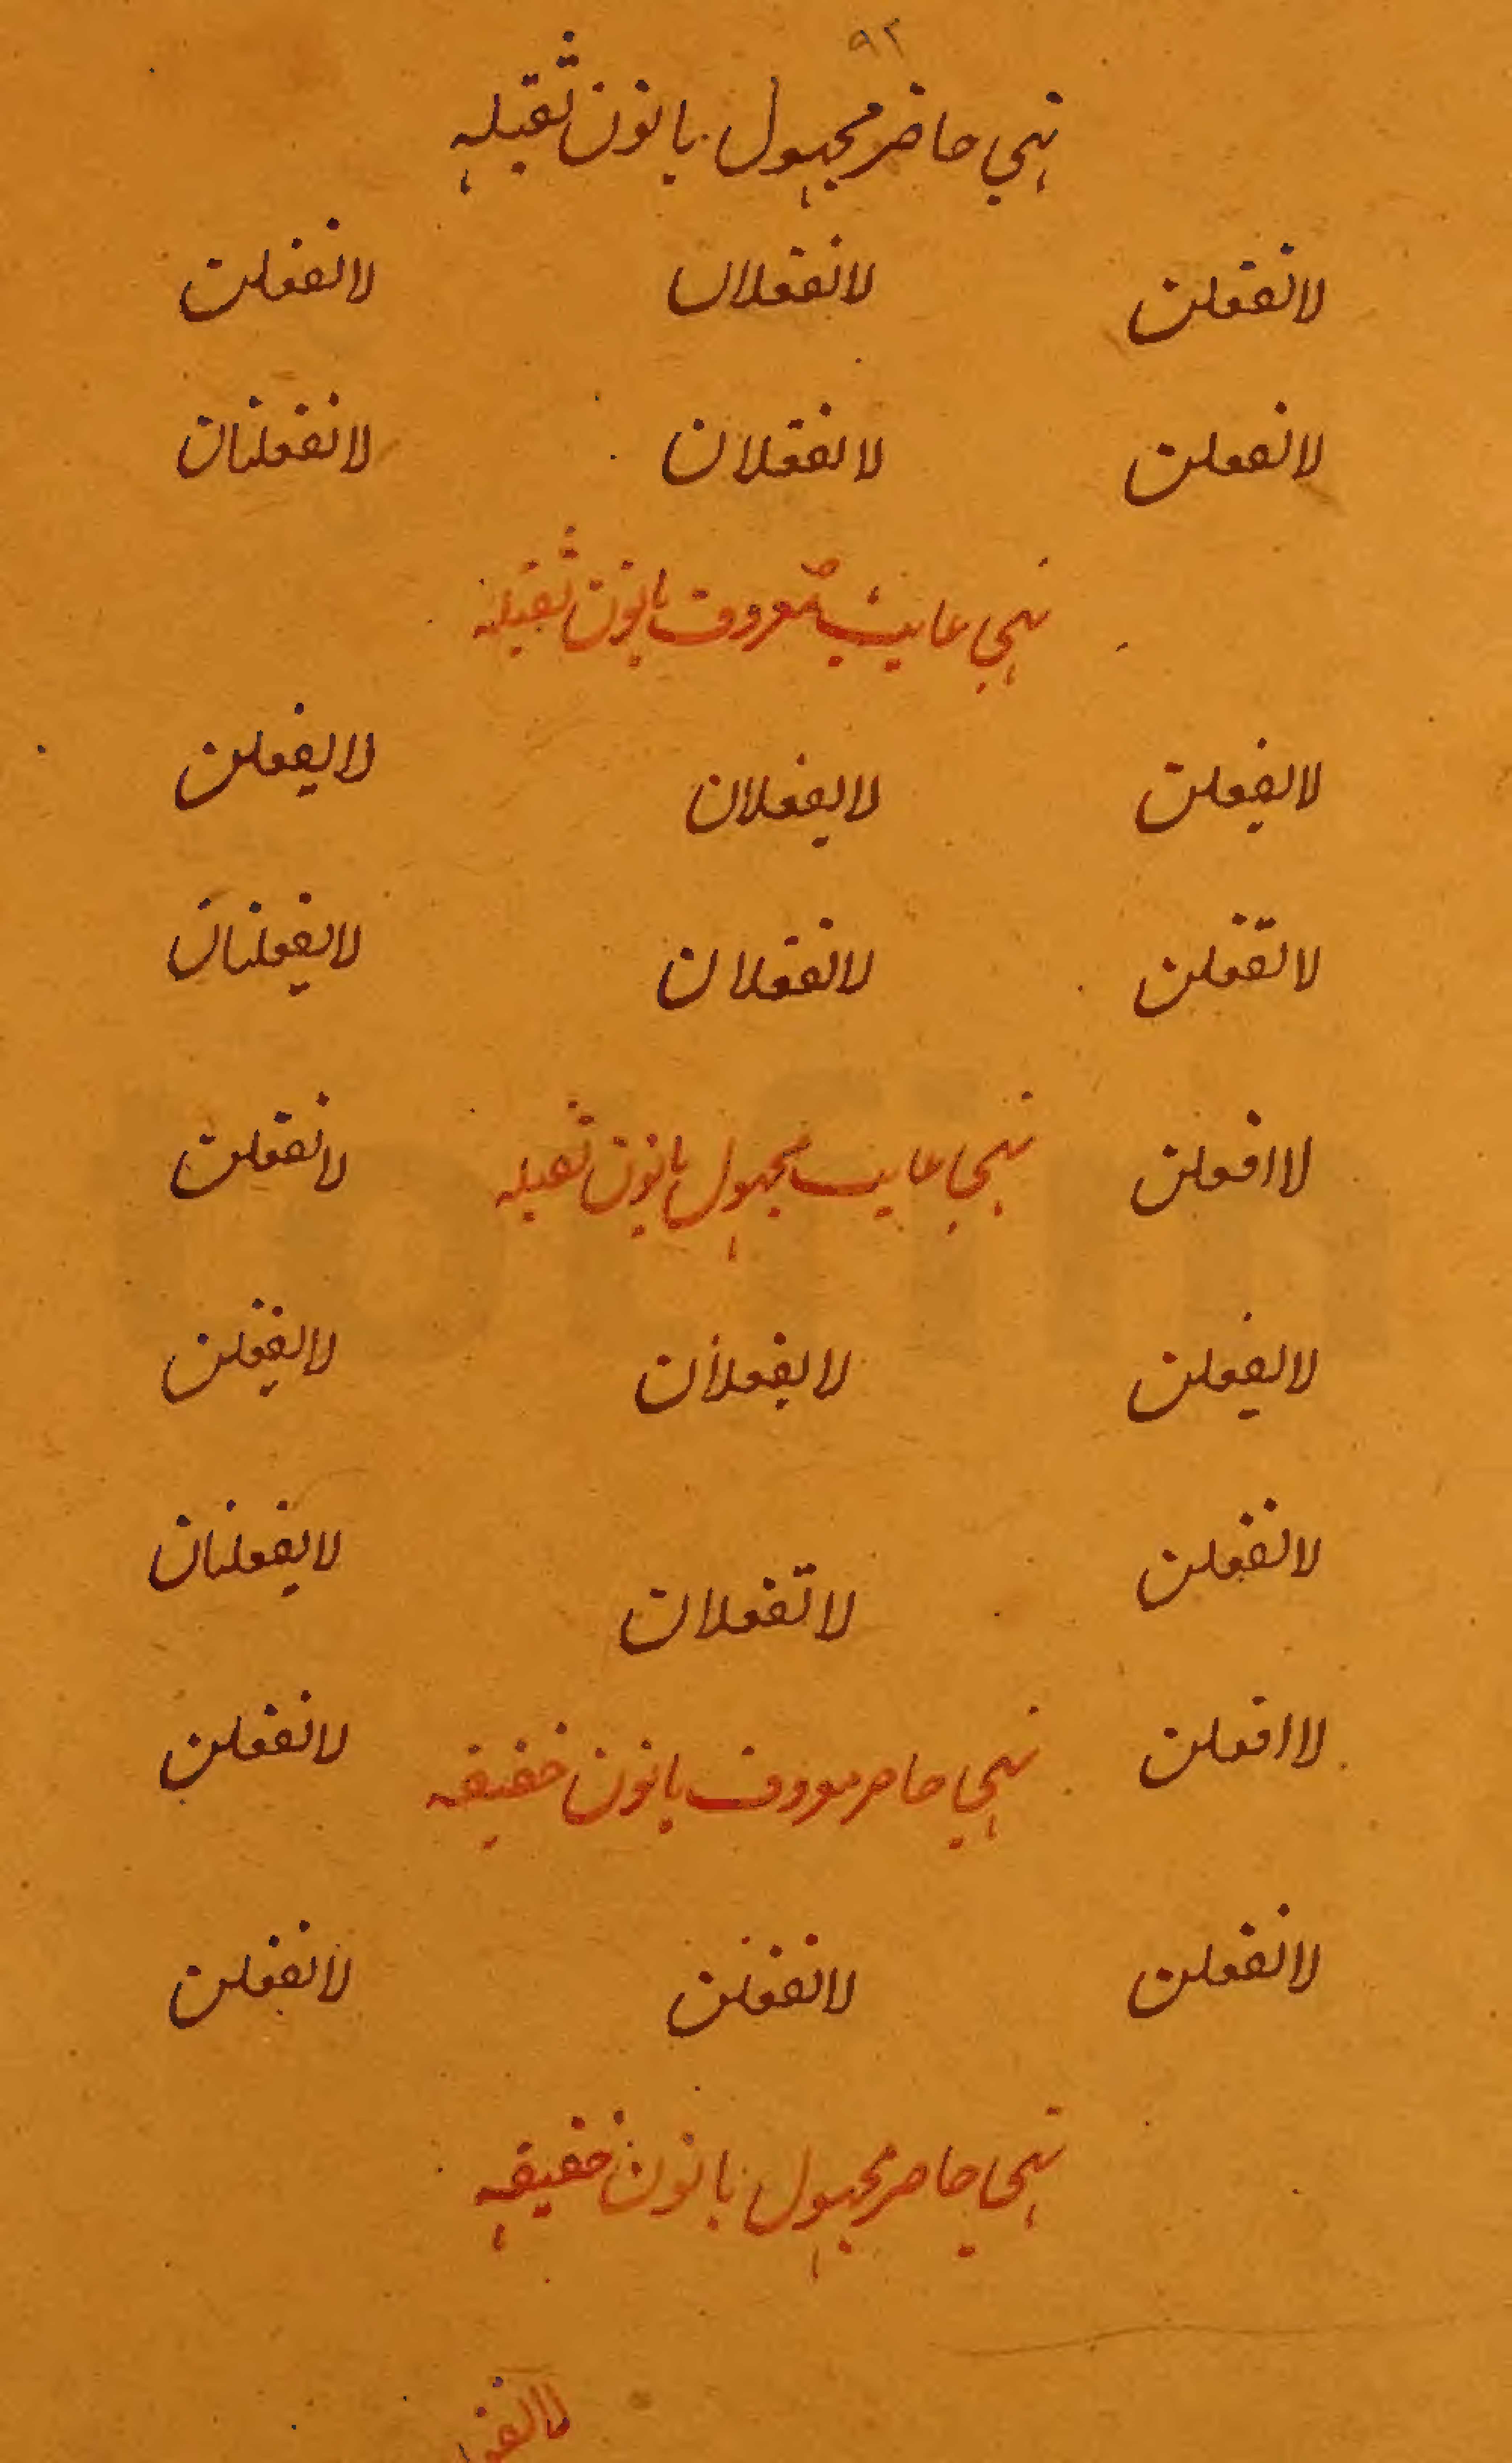 ٩٢
نهي حاضر مجهول بانون ثقيله
لاتفعلن لاتفعلان لاتفعلن
لاتفعلن لاتفعلان لاتفعلنان
نهي غايب معروف بانون ثقيله
لايفعلن لايفعلان لايفعلن
لاتفعلن لاتفعلان لايفعلنان
لاافعلن نهي غايب مجهول بانون ثقيله لانفعلن
لايفعلن لايفعلان لايفعلن
لاتفعلن لاتفعلان لايفعلنان
لاافعلن نهي حاضر معروف بانون خفيفه لانفعلن
لاتفعلن لاتفعلن لاتفعلن
نهي حاضر مجهول بانون خفيفه